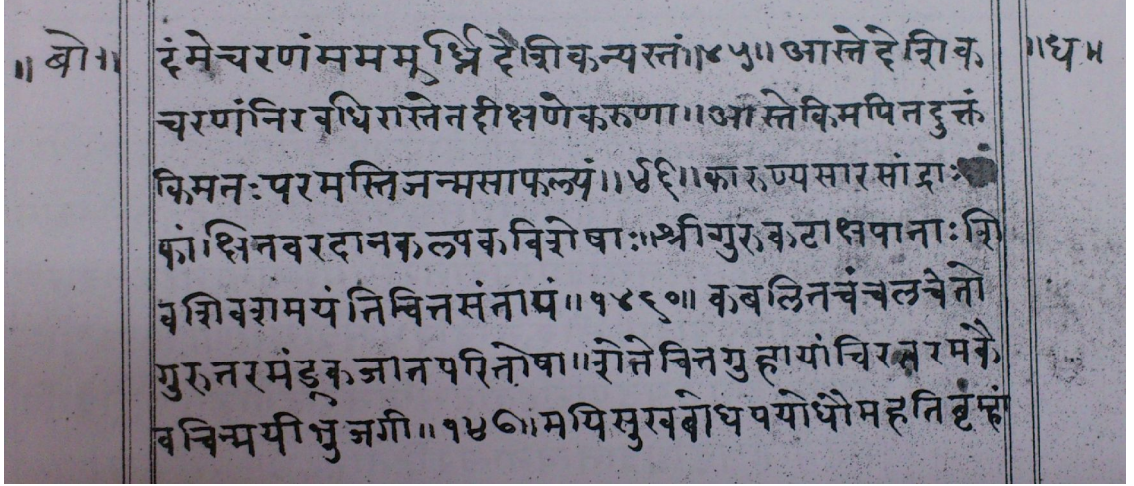 ॥बो॥ दंमेचरणंममममूर्ध्निदेशिकन्यस्तं॥४५॥आस्तेदेशिक ॥ध॥
चरणंनिरवधिरास्तेतदीक्षणेकरुणा॥आस्तेकिमपितदुक्तं
किमतःपरमस्तिजन्मसाफल्यं॥४६॥कारुण्यसारसांद्राः
कांक्षितवरदानकल्पकविशेषाः॥श्रीगुरुकटाक्षपाताःशि
वशिवशमयंतिचित्तसंतापं॥१४६०॥कबलितचंचलचेतो
गुरुतरमंडुकजातपरितोषा॥शेतेचितगुहायांचिरतरमकै
वचिन्मयीभुजगी॥१४७॥मयिसुखबोधपयोधौमहतिबृंम्हां